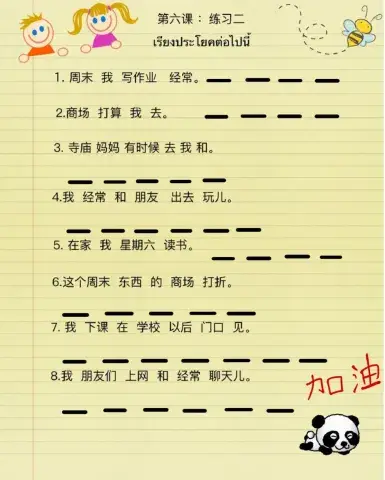 第六课 : 练习二
เรียงประโยคต่อไปนี้
1. 周末 我 写作业 经常。
2.商场 打算 我 去。
3. 寺庙 妈妈 有时候 去 我 和。
4.我 经常 和 朋友 出去 玩儿。
5. 在家 我 星期六 读书。
6.这个周末 东西 的 商场 打折。
7. 我 下课 在 学校 以后 门口 见。
8.我 朋友们 上网 和 经常 聊天儿。
加油